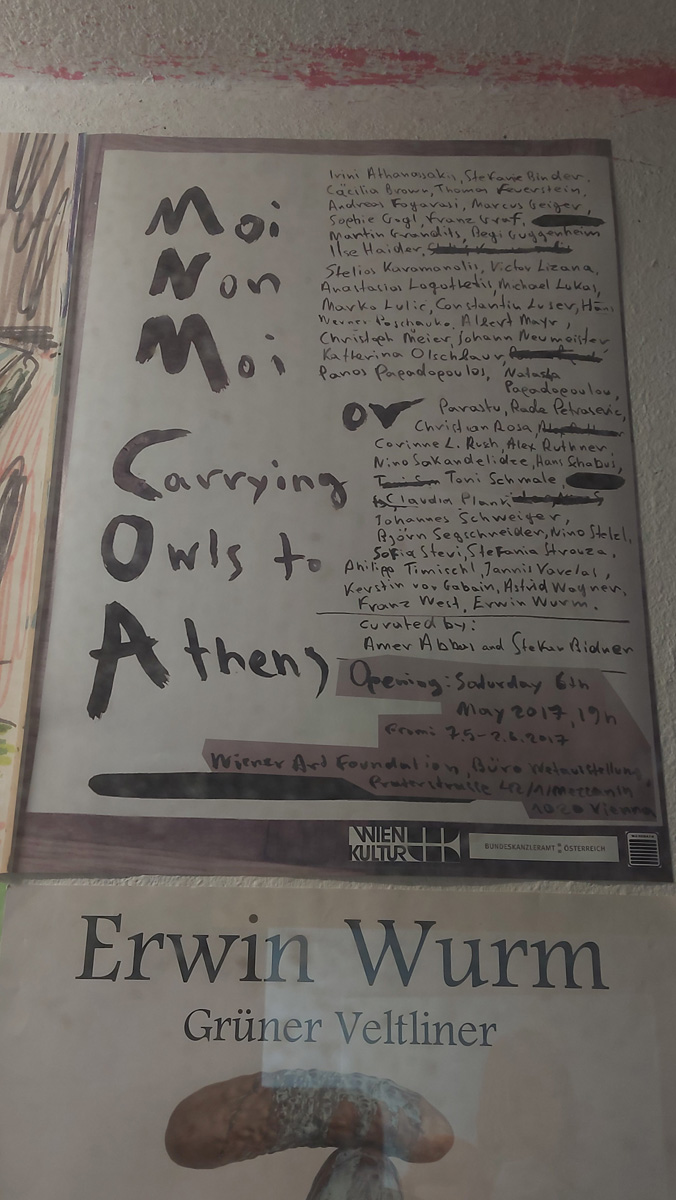 Moi
Non
Moi
or
Carrying
Owls to
Athens
Irini Athanassakis, Stefanie Binder,
Cäcilia Brown, Thomas Feuerstein,
Andreas Fogarasi, Marcus Geiger,
Sophie Gogl, Franz Graf,
Martin Grandits, Begi Guggenheim
Ilse Haider,
Stelios Karamanolis, Victor Lizana,
Anastasios Logothetis, Michael Lukas,
Marko Lulic, Constantin Luser, Hans
Werner Poschauko, Albert Mayr,
Christoph Meier, Johann Neumeister
Katherina Olschbaur,
Panos Papadopoulos, Natasha
Papadopoulou,
Parastu, Rade Petrasevic,
Christian Rosa,
Corinne L. Rusch, Alex Ruthner,
Nino Sakandelidze, Hans Schabus,
Toni Schmale,
Claudia Plank
Johannes Schweiger,
Björn Segschneider, Nino Stelzl,
Sofia Stevi, Stefania Strouza,
Philipp Timischl, Jannis Varelas,
Kerstin von Gabain, Astrid Wagner,
Franz West, Erwin Wurm.
curated by:
Amer Abbas and Stefan Bidner
Opening: Saturday 6th
May 2017, 19h
From: 7.5-2.6.2017
Wiener Art Foundation, Büro Weltausstellung
Praterstrasse 42/1/Mezzanin
1020 Vienna
WIEN
KULTUR
BUNDESKANZLERAMT ÖSTERREICH
Erwin Wurm
Grüner Veltliner